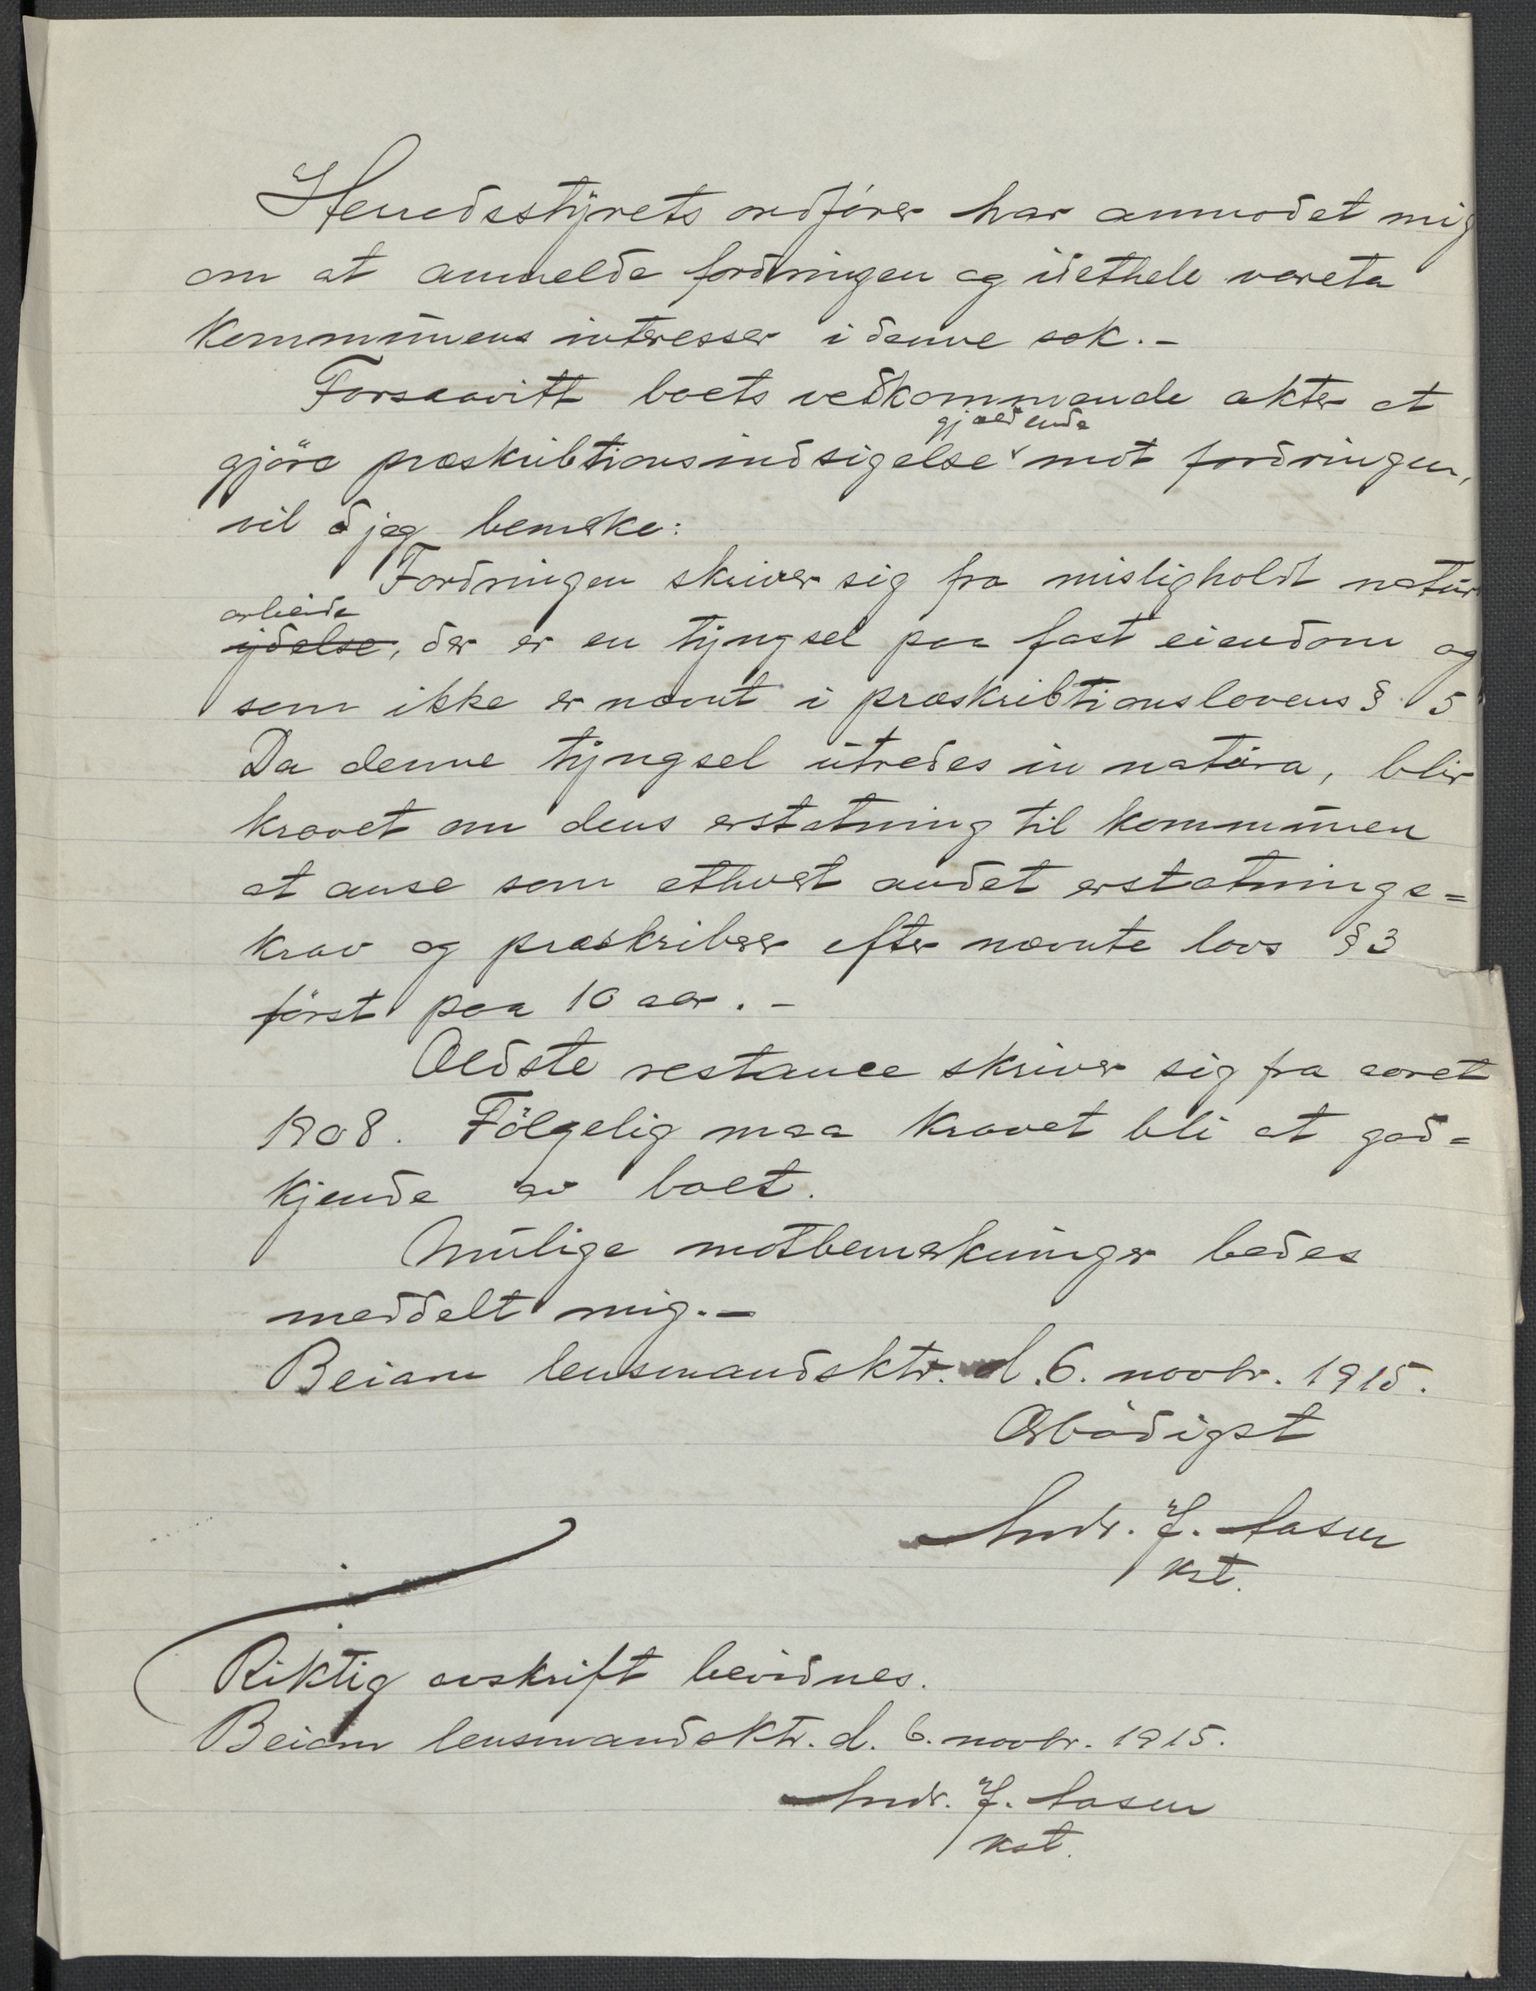 Herredsstyrets ordfører har anmodet mig
om at anmelde fordringen og idethele vareta
kommunens interesser i denne sak. -
Forsaavitt boets vedkommende akter at
gjøre præskribtionsindsigelse gjældende mot fordringen,
vil jeg bemerke:
Fordringen skriver sig fra misligholdt natur
arbeide
ydelse, der er en tyngsel paa fast eiendom og
som ikke er nævnt i præskribtionslovens § 5
Da denne tyngsel utredes in natura, blir
kravet om dens erstatning til kommunen
at anse som ethvert andet erstatnings=
krav og præskriberer efter nævnte lovs § 3
først paa 10 aar. -
Ældste restance skriver sig fra aaret
1908. Følgelig maa kravet bli at god=
kjende av boet.
Mulige motbemerkninger bedes
meddelt mig. -
Beiarn lensmandsktr. d. 6. novbr. 1915.
Ærbødigst
Andr. J. Aasen
kst.
Riktig avskrift bevidnes.
Beiarn lensmandsktr. d. 6. novbr. 1915.
Andr. J. Aasen
kst.